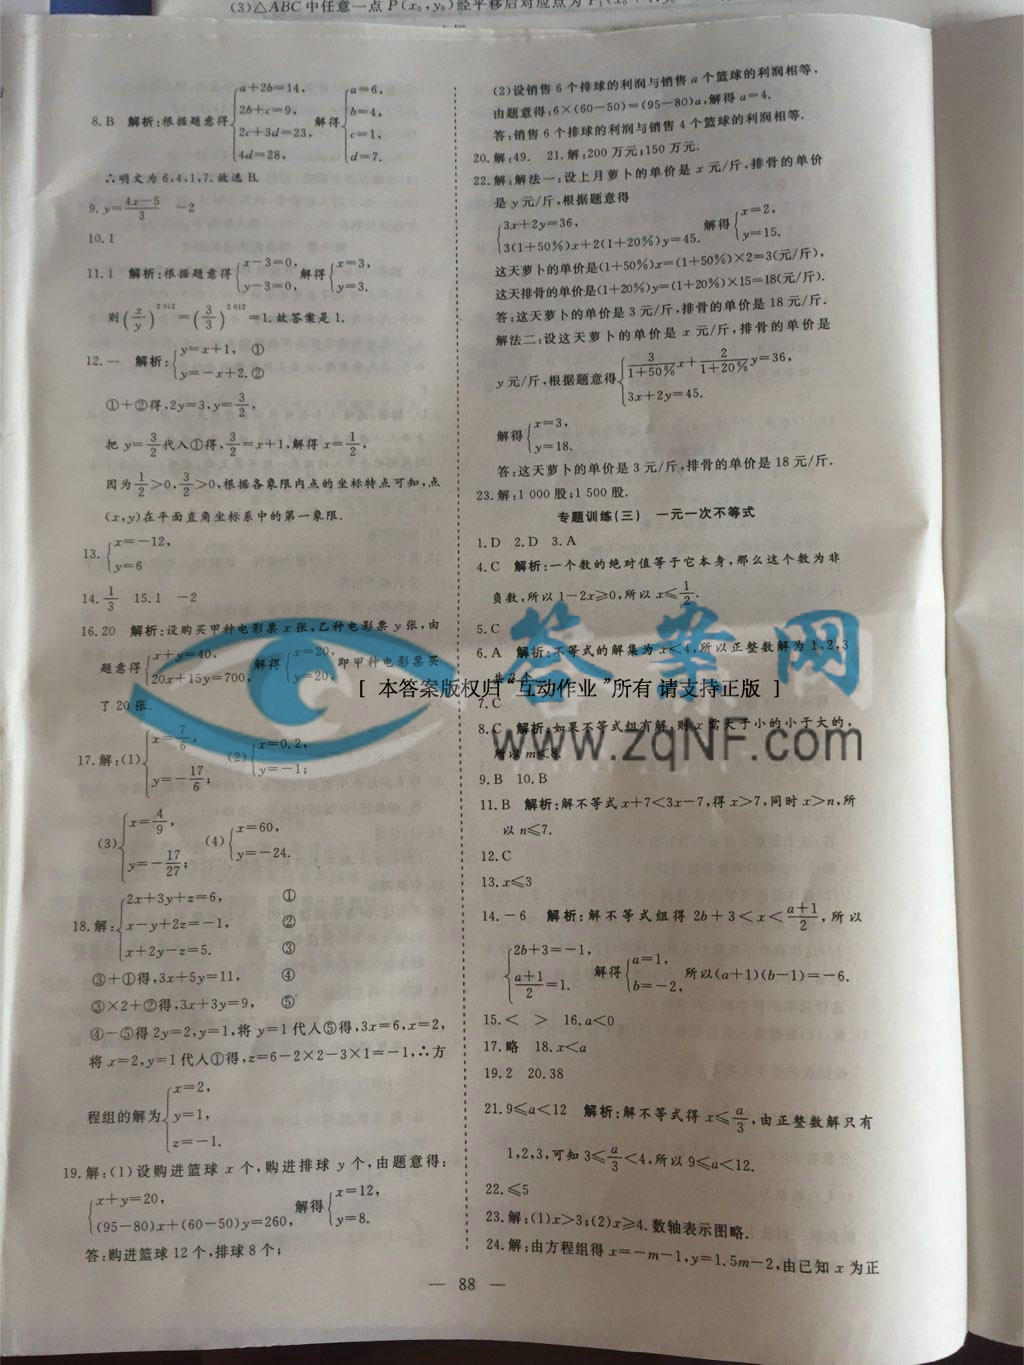 (3)△ABC中任意一点P(x₀,y₀)经平移后对应点为P₁(x₀
8.B 解析:根据题意得{a+2b=14, 2b+c=9, 2c+3d=23, 4d=28, 解得{a=6, b=4, c=1, d=7.
∴明文为6,4,1,7.故选B.
9.y=(4x-5)/3 -2
10.1
11.1 解析:根据题意得{x-3=0, y-3=0, 解得{x=3, y=3.
则(x/y)^2012=(3/3)^2012=1.故答案是1.
12.一 解析:{y=x+1, ① y=-x+2.②
①+②得,2y=3,y=3/2,
把y=3/2代入①得,3/2=x+1,解得x=1/2,
因为1/2>0,3/2>0,根据各象限内点的坐标特点可知,点
(x,y)在平面直角坐标系中的第一象限.
13.{x=-12, y=6
14.1/3 15.1 -2
16.20 解析:设购买甲种电影票x张,乙种电影票y张,由
题意得{x+y=40, 20x+15y=700, 解得{x=20, y=20, 即甲种电影票买
了20张.
17.解:(1){x=7/6, y=-17/6; (2){x=0.2, y=-1;
(3){x=4/9, y=-17/27; (4){x=60, y=-24.
18.解:{2x+3y+z=6, ① x-y+2z=-1, ② x+2y-z=5. ③
③+①得,3x+5y=11, ④
③×2+②得,3x+3y=9, ⑤
④-⑤得2y=2,y=1,将y=1代入⑤得,3x=6,x=2,
将x=2,y=1代入①得,z=6-2×2-3×1=-1,∴方
程组的解为{x=2, y=1, z=-1.
19.解:(1)设购进篮球x个,购进排球y个,由题意得:
{x+y=20, (95-80)x+(60-50)y=260, 解得{x=12, y=8.
答:购进篮球12个,排球8个;
(2)设销售6个排球的利润与销售a个篮球的利润相等,
由题意得:6×(60-50)=(95-80)a,解得a=4.
答:销售6个排球的利润与销售4个篮球的利润相等.
20.解:49. 21.解:200万元;150万元.
22.解:解法一:设上月萝卜的单价是x元/斤,排骨的单价
是y元/斤,根据题意得
{3x+2y=36, 3(1+50%)x+2(1+20%)y=45. 解得{x=2, y=15.
这天萝卜的单价是(1+50%)x=(1+50%)×2=3(元/斤),
这天排骨的单价是(1+20%)y=(1+20%)×15=18(元/斤).
答:这天萝卜的单价是3元/斤,排骨的单价是18元/斤.
解法二:设这天萝卜的单价是x元/斤,排骨的单价是
y元/斤,根据题意得{3/(1+50%)x+2/(1+20%)y=36, 3x+2y=45.
解得{x=3, y=18.
答:这天萝卜的单价是3元/斤,排骨的单价是18元/斤.
23.解:1 000股;1 500股.
专题训练(三) 一元一次不等式
1.D 2.D 3.A
4.C 解析:一个数的绝对值等于它本身,那么这个数为非
负数,所以1-2x≥0,所以x≤1/2.
5.C
6.A 解析:不等式的解集为x<4,所以正整数解为1,2,3
共3个.
7.C
8.C 解析:如果不等式组有解,则x需大于小的小于大的,
所以m≤8.
9.B 10.B
11.B 解析:解不等式x+7<3x-7,得x>7,同时x>n,所
以n≤7.
12.C
13.x≤3
14.-6 解析:解不等式组得2b+3<x<(a+1)/2,所以
{2b+3=-1, (a+1)/2=1. 解得{a=1, b=-2, 所以(a+1)(b-1)=-6.
15.< > 16.a<0
17.略 18.x<a
19.2 20.38
21.9≤a<12 解析:解不等式得x≤a/3,由正整数解只有
1,2,3,可知3≤a/3<4,所以9≤a<12.
22.≤5
23.解:(1)x>3;(2)x≥4.数轴表示图略.
24.解:由方程组得x=-m-1,y=1.5m-2,由已知x为正
— 88 —
答案网
[ 本答案版权归“互动作业”所有 请支持正版 ]
www.zqNF.com